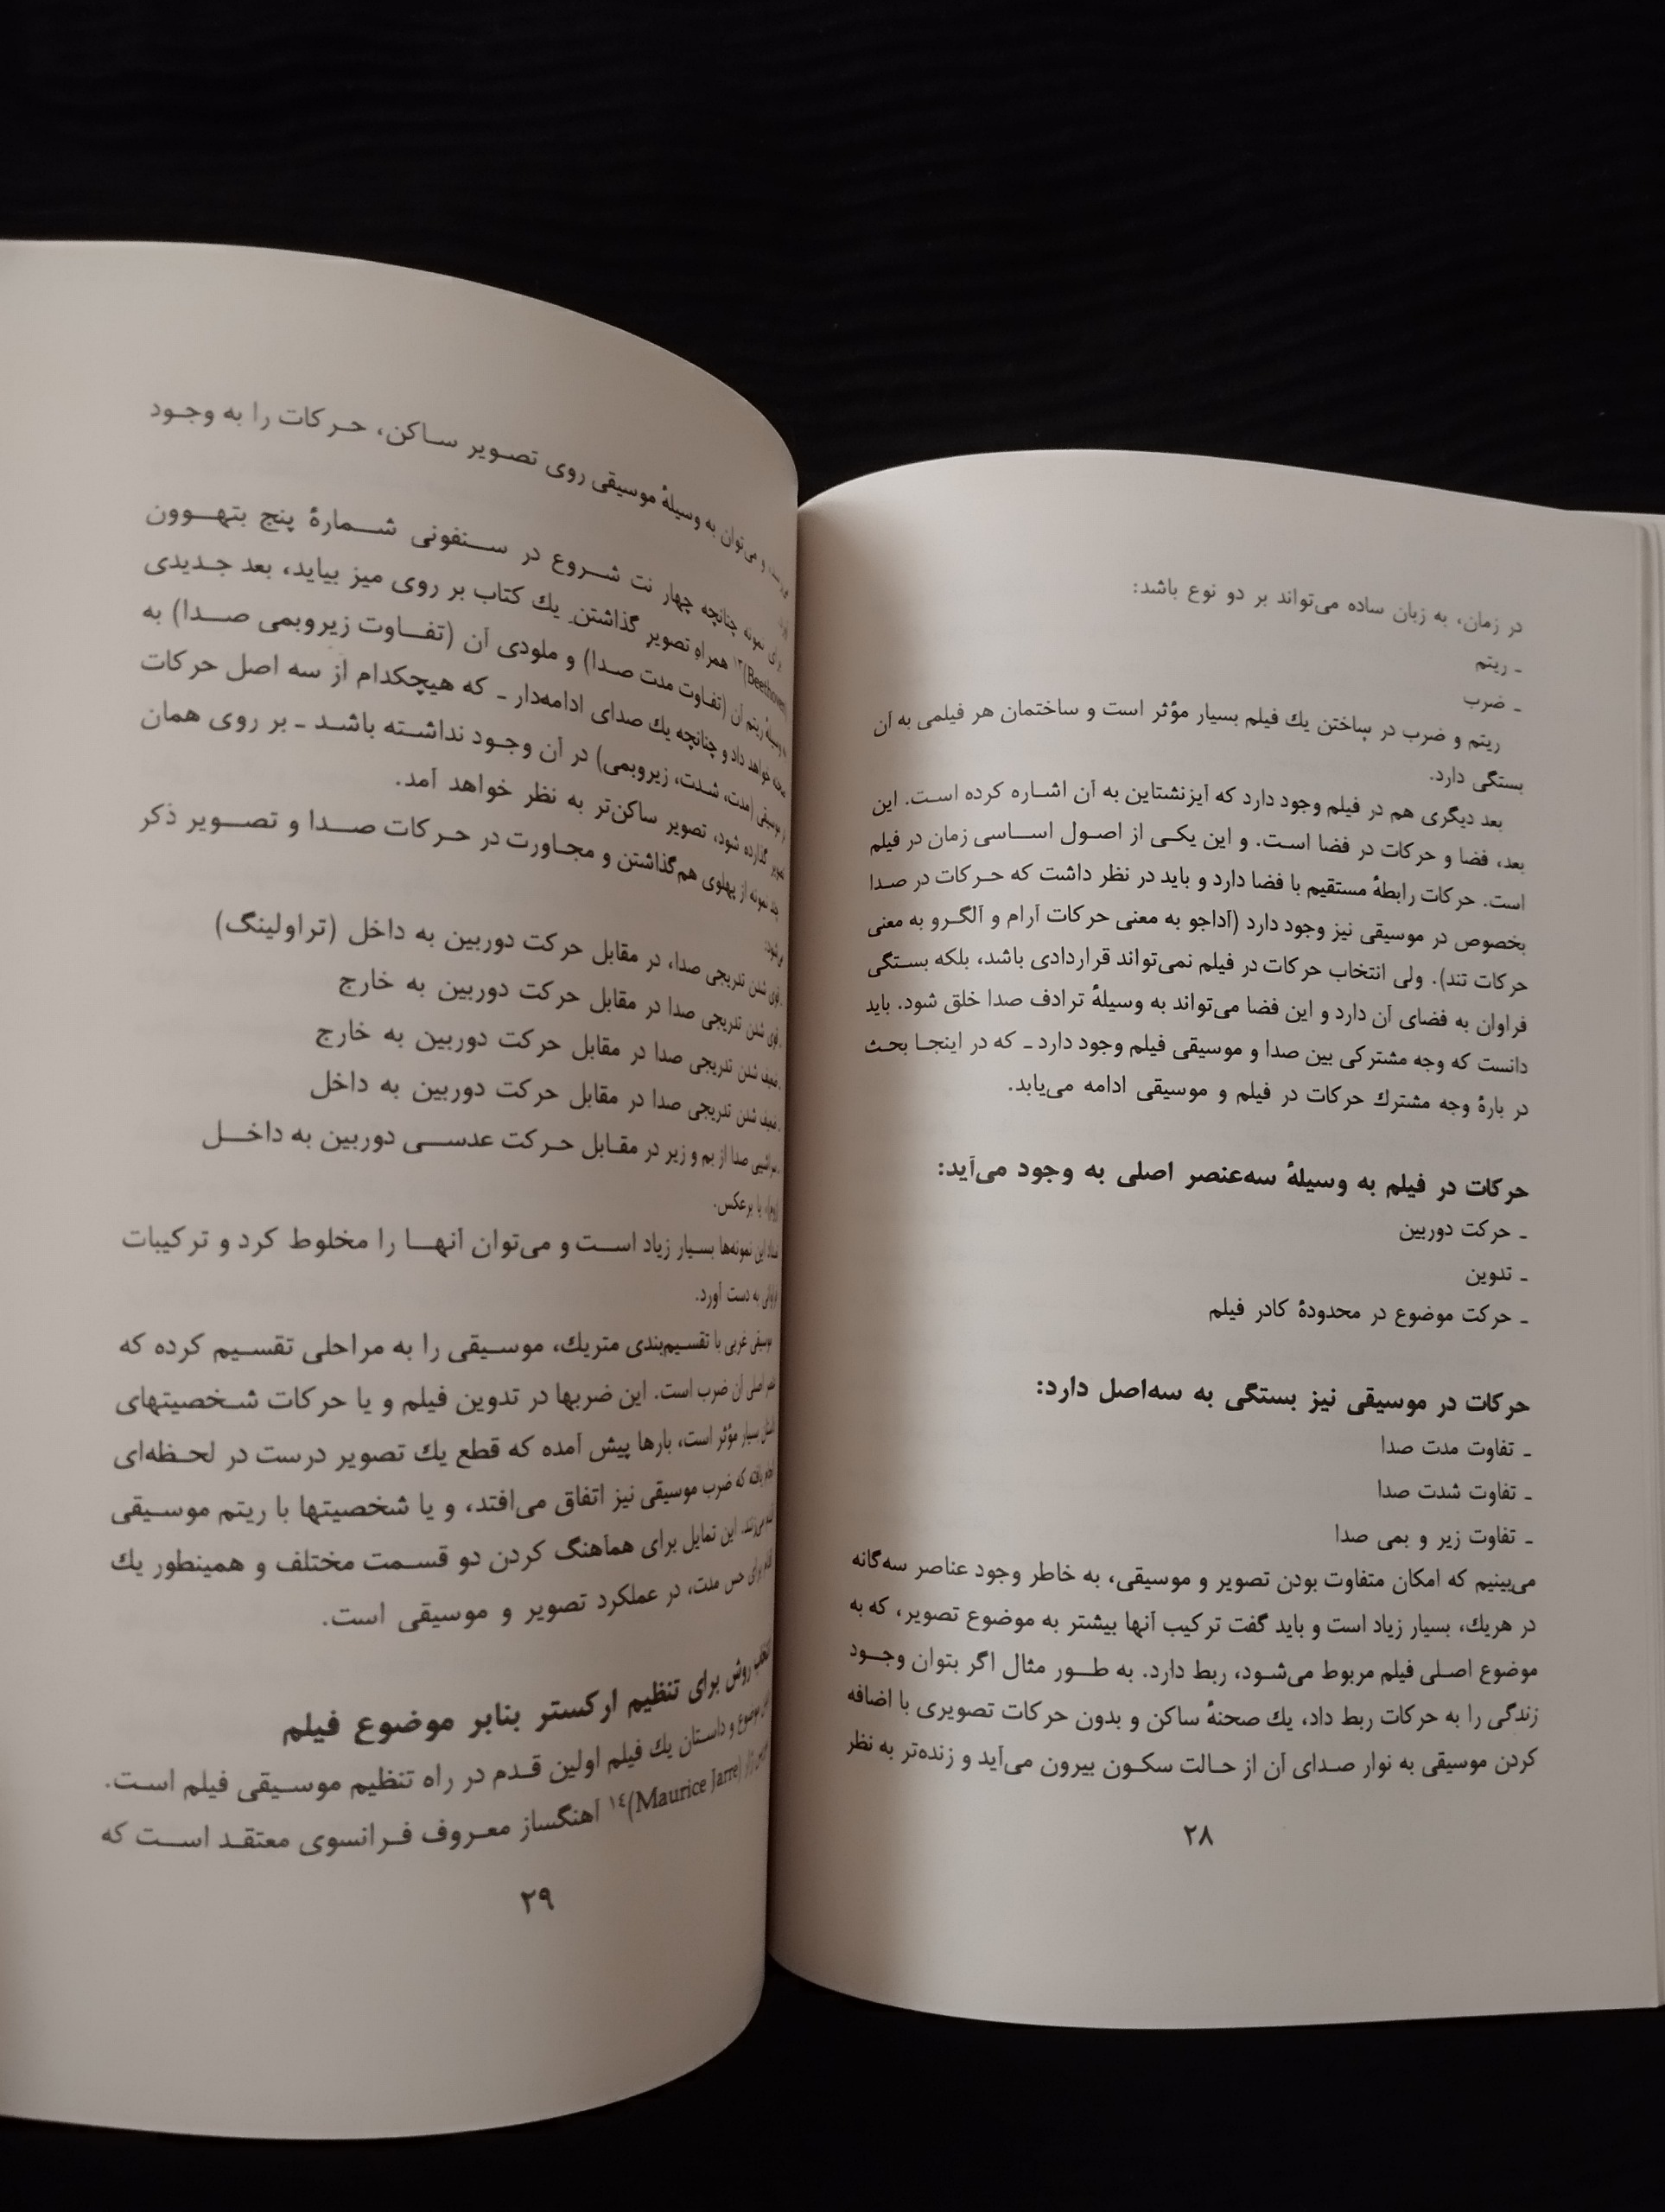 در زمان، به زبان ساده می‌تواند بر دو نوع باشد:
ـ ریتم
ـ ضرب
ریتم و ضرب در ساختن یك فیلم بسیار مؤثر است و ساختمان هر فیلمی به آن
بستگی دارد.
بعد دیگری هم در فیلم وجود دارد که آیزنشتاین به آن اشاره کرده است. این
بعد، فضا و حرکات در فضا است. و این یکی از اصول اساسی زمان در فیلم
است. حرکات رابطهٔ مستقیم با فضا دارد و باید در نظر داشت که حرکات در صدا
بخصوص در موسیقی نیز وجود دارد (آداجو به معنی حرکات آرام و آلگرو به معنی
حرکات تند). ولی انتخاب حرکات در فیلم نمی‌تواند قراردادی باشد، بلکه بستگی
فراوان به فضای آن دارد و این فضا می‌تواند به وسیلهٔ ترادف صدا خلق شود. باید
دانست که وجه مشترکی بین صدا و موسیقی فیلم وجود دارد ـ که در اینجا بحث
در بارهٔ وجه مشترك حرکات در فیلم و موسیقی ادامه می‌یابد.
حرکات در فیلم به وسیلهٔ سه‌عنصر اصلی به وجود می‌آید:
ـ حرکت دوربین
ـ تدوین
ـ حرکت موضوع در محدودهٔ کادر فیلم
حرکات در موسیقی نیز بستگی به سه‌اصل دارد:
ـ تفاوت مدت صدا
ـ تفاوت شدت صدا
ـ تفاوت زیر و بمی صدا
می‌بینیم که امکان متفاوت بودن تصویر و موسیقی، به خاطر وجود عناصر سه‌گانه
در هریك، بسیار زیاد است و باید گفت ترکیب آنها بیشتر به موضوع تصویر، که به
موضوع اصلی فیلم مربوط می‌شود، ربط دارد. به طور مثال اگر بتوان وجود
زندگی را به حرکات ربط داد، یك صحنهٔ ساکن و بدون حرکات تصویری با اضافه
کردن موسیقی به نوار صدای آن از حالت سکون بیرون می‌آید و زنده‌تر به نظر
۲۸
و می‌توان به وسیلهٔ موسیقی روی تصویر ساکن، حرکات را به وجود
برای نمونه چنانچه چهار نت شروع در سنفونی شمارهٔ پنج بتهوون
(Beethoven)۱۳ همراهِ تصویرِ گذاشتنِ یك کتاب بر روی میز بیاید، بعد جدیدی
وسیلهٔ ریتم آن (تفاوت مدت صدا) و ملودی آن (تفاوت زیروبمی صدا) به
خواهد داد و چنانچه یك صدای ادامه‌دار ـ که هیچکدام از سه اصل حرکات
موسیقی (مدت، شدت، زیروبمی) در آن وجود نداشته باشد ـ بر روی همان
تصویر گذارده شود، تصویر ساکن‌تر به نظر خواهد آمد.
چند نمونه از پهلوی هم‌گذاشتن و مجاورت در حرکات صدا و تصویر ذکر
می‌شود:
ـ قوی شدن تدریجی صدا، در مقابل حرکت دوربین به داخل (تراولینگ)
ـ قوی شدن تدریجی صدا در مقابل حرکت دوربین به خارج
ـ ضعیف شدن تدریجی صدا در مقابل حرکت دوربین به خارج
ـ ضعیف شدن تدریجی صدا در مقابل حرکت دوربین به داخل
صدا از بم و زیر در مقابل حرکت عدسی دوربین به داخل
یا برعکس.
تعداد این نمونه‌ها بسیار زیاد است و می‌توان آنها را مخلوط کرد و ترکیبات
فراوانی به دست آورد.
موسیقی غربی با تقسیم‌بندی متریك، موسیقی را به مراحلی تقسیم کرده که
عنصر اصلی آن ضرب است. این ضربها در تدوین فیلم و یا حرکات شخصیتهای
داستان بسیار مؤثر است، بارها پیش آمده که قطع یك تصویر درست در لحظه‌ای
انجام یافته که ضرب موسیقی نیز اتفاق می‌افتد، و یا شخصیتها با ریتم موسیقی
قدم می‌زنند. این تمایل برای هماهنگ کردن دو قسمت مختلف و همینطور یك
برای حس مدت، در عملکرد تصویر و موسیقی است.
انتخاب روش برای تنظیم ارکستر بنابر موضوع فیلم
موضوع و داستان یك فیلم اولین قدم در راه تنظیم موسیقی فیلم است.
موریس ژار (Maurice Jarre)۱۴ آهنگساز معروف فرانسوی معتقد است که
۲۹